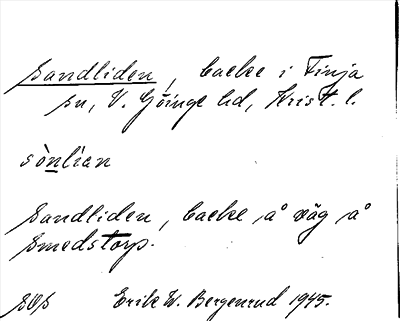 Sandliden, backe i Finja
sn, V. Göinge hd, Krist. l.
sònlìan
Sandliden, backe å väg å
Smedstorp.
Erik W. Bergenrud 1945.